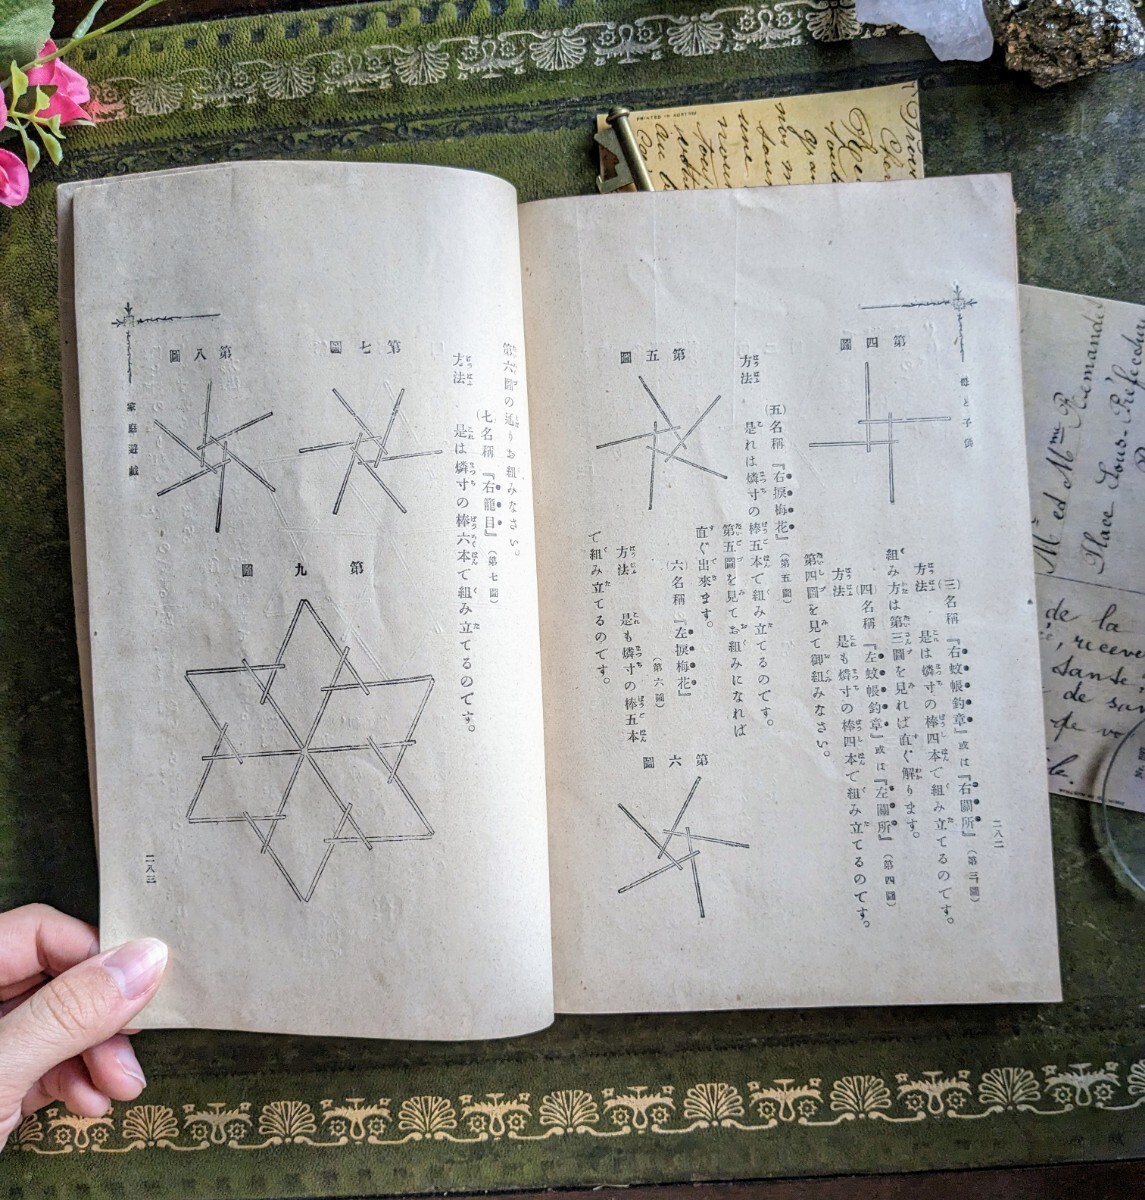 母と子供
二八二
第四圖
(三)名稱『右蚊帳釣章』或は『右關所』(第三圖)
方法 是は燐寸の棒四本で組み立てるのです。
組み方は第三圖を見れば直ぐ解ります。
(四)名稱『左蚊帳釣章』或は『左關所』(第四圖)
方法 是も燐寸の棒四本で組み立てるのです。
第四圖を見て御組みなさい。
(五)名稱『右捩梅花』(第五圖)
方法 是れは燐寸の棒五本で組み立てるのです。
第五圖を見てお組みになれば
直ぐ出來ます。
第五圖
(六)名稱『左捩梅花』
(第六圖)
方法 是も燐寸の棒五本
で組み立てるのです。
第六圖
第六圖の通りお組みなさい。
(七)名稱『右籠目』(第七圖)
方法 是は燐寸の棒六本で組み立てるのです。
第七圖
第八圖
第九圖
家庭遊戯
二八三
PRINTED IN AUSTRIA